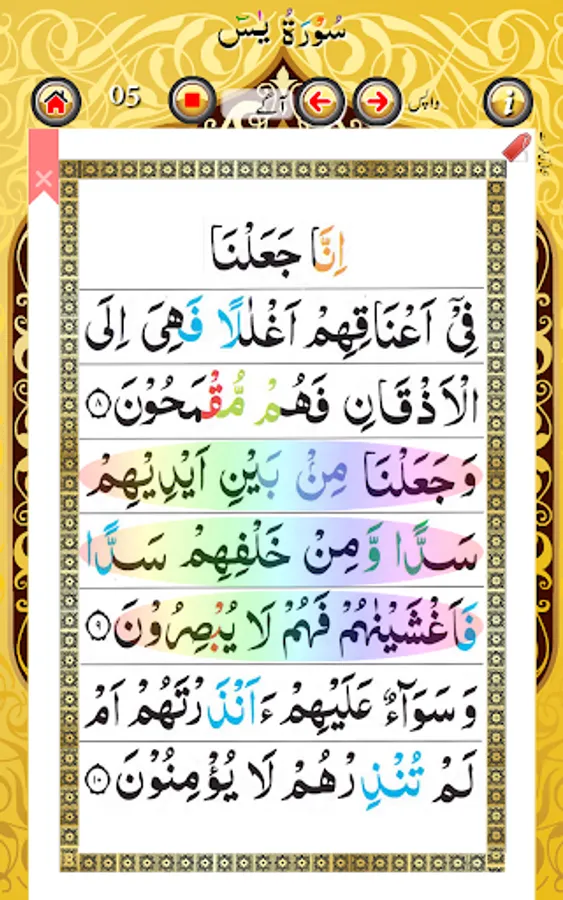 سُوْرَةُ يٰسٓ
05 آگے واپس i
اِنَّا جَعَلْنَا
فِيْۤ اَعْنَاقِهِمْ اَغْلٰلًا فَهِيَ اِلَى
الْاَذْقَانِ فَهُمْ مُّقْمَحُوْنَ ۸
وَجَعَلْنَا مِنْۢ بَيْنِ اَيْدِيْهِمْ
سَدًّا وَّمِنْ خَلْفِهِمْ سَدًّا
فَاَغْشَيْنٰهُمْ فَهُمْ لَا يُبْصِرُوْنَ ۹
وَسَوَآءٌ عَلَيْهِمْ ءَاَنْذَرْتَهُمْ اَمْ
لَمْ تُنْذِرْهُمْ لَا يُؤْمِنُوْنَ ۱۰